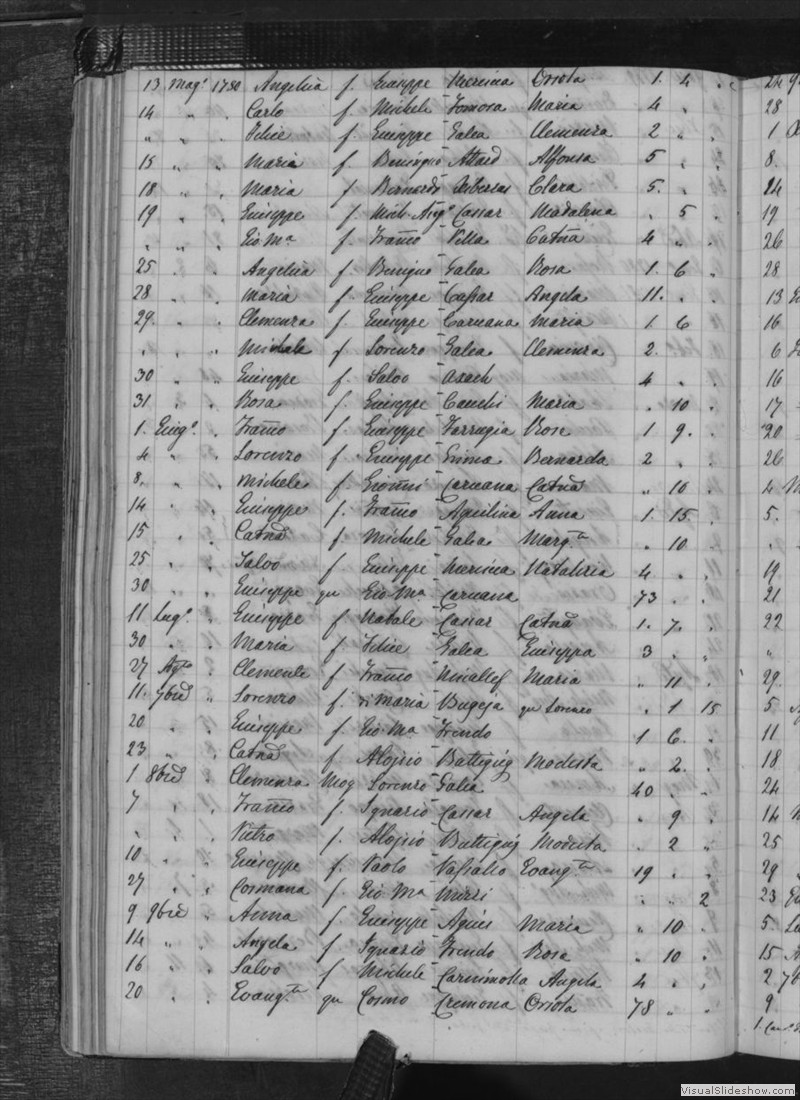 13 Mag.º 1780 Angelica f. Giuseppe Mercieca Orsola 1. 4 .
14 " " Carlo f. Michele Tomosa Maria 4 . .
" " " Felice f. Giuseppe Galea Clemenza 2 " .
15 " " Maria f Benigno Attard Alfonsa 5 . .
18 " " Maria f Bernardo Clara 5. . .
19 " " Giuseppe f. Mich. Ang.º Cassar Madalena . 5 .
" " " Gio Mª f. Franco Vella Catna 4 " .
25 . . Angelica f. Benigno Galea Rosa 1. 6 .
28 " . Maria f. Giuseppe Cassar Angela 11. . .
29. . . Clemenza f. Giuseppe Caruana Maria 1. 6 .
" . " Michele f Lorenzo Galea Clemenza 2. . .
30 " . Giuseppe f. Salvo Axach 4 . .
31 . . Rosa f. Giuseppe Cauchi Maria . 10 .
1. Giug.º . Franco f. Giuseppe Farrugia Rosa 1 9. .
4 " . Lorenzo f. Giuseppe Grima Bernarda 2 . .
8. " . Michele f. Gionni Caruana Catna " 10 .
14 " . Giuseppe f. Franco Aquilina Anna 1. 15. .
15 . . Catna f Michele Galea Marg.ta . 10 .
25 " . Salvo f Giuseppe Mercieca Natalizia 4 . .
30 . . Giuseppe qu Gio Mª Caruana 73 . .
11 Lug.º . Giuseppe f Natale Cassar Catna 1. 7. .
30 " . Maria f Felice Galea Giuseppa 3 . .
27 Ag.to . Clemente f. Franco Micallef Maria " 11 .
11. 7bre " Lorenzo f. di Maria Bugeja qu Lorenzo . 1 15
20 " . Giuseppe f. Gio Mª Trendo 1 6. .
23 " . Catna f. Aloisio Buttigieg Modesta " 2. .
1 8bre . Clemenza Mog Lorenzo Galea 40 . .
7 " . Franco f. Ignazio Cassar Angela " 9 .
" " . Pietro f. Aloisio Buttigieg Modesta . 2 "
10 " . Giuseppe f. Paolo Vassallo Evang.ta 19 . .
27 . . Cosmana f. Gio Mª Mizzi " . 2
9 9bre . Anna f. Giuseppe Agius Maria " 10 .
14 " . Angela f Ignazio Trendo Rosa " 10 .
16 " " Salvo f Michele Angela 4 . .
20 . . Evang.ta qu Cosmo Cremona Orsola 78 " .
24
28
1
8.
24
19
26
28
13
16
6
16
17
20
26
4
5.
19
21
22
"
29.
5
11
18
24
14
25
29
23
5
15
2
9
VisualSlideshow.com